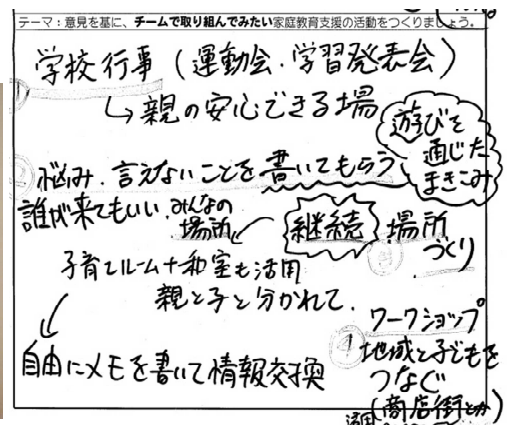 テーマ：意見を基に、チームで取り組んでみたい家庭教育支援の活動をつくりましょう。
学校行事（運動会・学習発表会）
①
↳親の安心できる場
遊びを
通じた
まきこみ
②
悩み、言えないことを書いてもらう
誰が来てもいい、みんなの
場所
継続 場所
づくり
③
子育てルーム＋和室も活用
親と子と分かれて、
自由にメモを書いて情報交換
ワークショップ
④地域と子どもを
つなぐ
（商店街とか）
活用